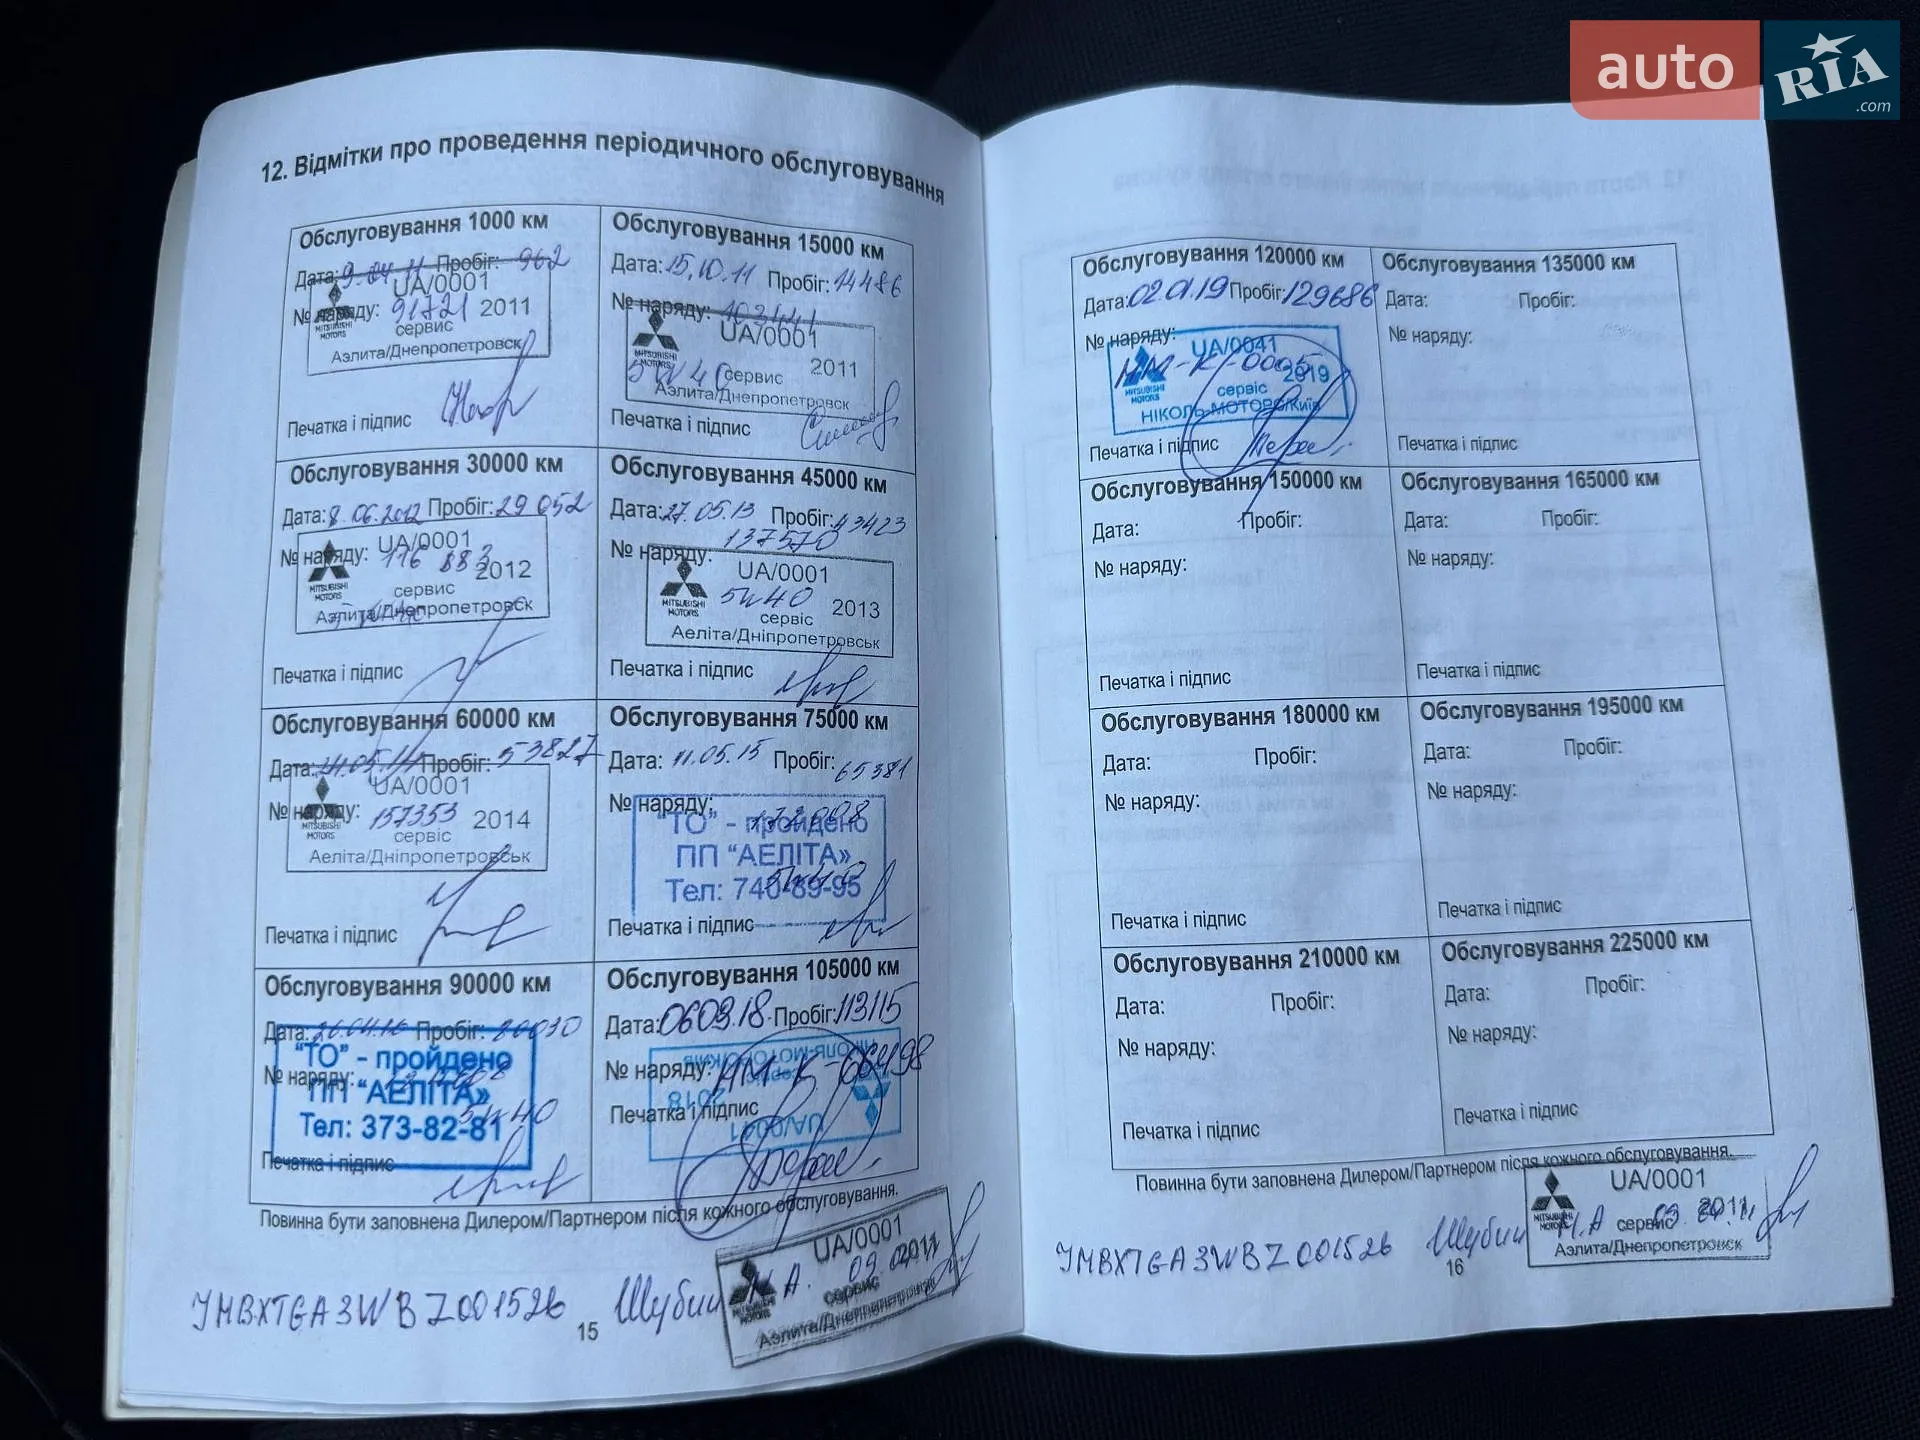 auto RIA.com
12. Відмітки про проведення періодичного обслуговування
Обслуговування 1000 км
Дата: 9.04.11 Пробіг: 962
№ наряду: 91721
UA/0001
2011
MITSUBISHI MOTORS
сервис
Аэлита/Днепропетровск
Печатка і підпис
Обслуговування 15000 км
Дата: 15.10.11 Пробіг: 14486
№ наряду:
UA/0001
2011
MITSUBISHI MOTORS
5W40
сервис
Аэлита/Днепропетровск
Печатка і підпис
Обслуговування 30000 км
Дата: 8.06.2012 Пробіг: 29052
№ наряду: 116 883
UA/0001
2012
MITSUBISHI MOTORS
сервис
Аэлита/Днепропетровск
Печатка і підпис
Обслуговування 45000 км
Дата: 27.05.13 Пробіг: 43423
№ наряду: 137570
UA/0001
5W40
2013
MITSUBISHI MOTORS
сервіс
Аеліта/Дніпропетровськ
Печатка і підпис
Обслуговування 60000 км
Дата: Пробіг: 53827
№ наряду: 157353
UA/0001
2014
MITSUBISHI MOTORS
сервіс
Аеліта/Дніпропетровськ
Печатка і підпис
Обслуговування 75000 км
Дата: 11.05.15 Пробіг: 65381
№ наряду:
"ТО" - пройдено
ПП "АЕЛІТА»
Тел: 740-89-95
Печатка і підпис
Обслуговування 90000 км
Дата: 26.04.16 Пробіг: 80030
№ наряду:
"ТО" - пройдено
ПП "АЕЛІТА»
5W40
Тел: 373-82-81
Печатка і підпис
Обслуговування 105000 км
Дата: 06.03.18 Пробіг: 113115
№ наряду:
НІКОЛЬ-МОТОРС/Київ
сервіс
2018
UA/0041
Печатка і підпис
Повинна бути заповнена Дилером/Партнером після кожного обслуговування.
JMBXTGA3WBZ001526 Шубин М.А.
UA/0001
09.04.2011
сервис
Аэлита/Днепропетровск
15
Обслуговування 120000 км
Дата: 02.01.19 Пробіг: 129686
№ наряду:
UA/0041
2019
MITSUBISHI MOTORS
сервіс
НІКОЛЬ-МОТОРС/Київ
Печатка і підпис
Обслуговування 135000 км
Дата: Пробіг:
№ наряду:
Печатка і підпис
Обслуговування 150000 км
Дата: Пробіг:
№ наряду:
Печатка і підпис
Обслуговування 165000 км
Дата: Пробіг:
№ наряду:
Печатка і підпис
Обслуговування 180000 км
Дата: Пробіг:
№ наряду:
Печатка і підпис
Обслуговування 195000 км
Дата: Пробіг:
№ наряду:
Печатка і підпис
Обслуговування 210000 км
Дата: Пробіг:
№ наряду:
Печатка і підпис
Обслуговування 225000 км
Дата: Пробіг:
№ наряду:
Печатка і підпис
Повинна бути заповнена Дилером/Партнером після кожного обслуговування.
JMBXTGA3WBZ001526 Шубин М.А
UA/0001
2011
MITSUBISHI MOTORS
сервис
Аэлита/Днепропетровск
16